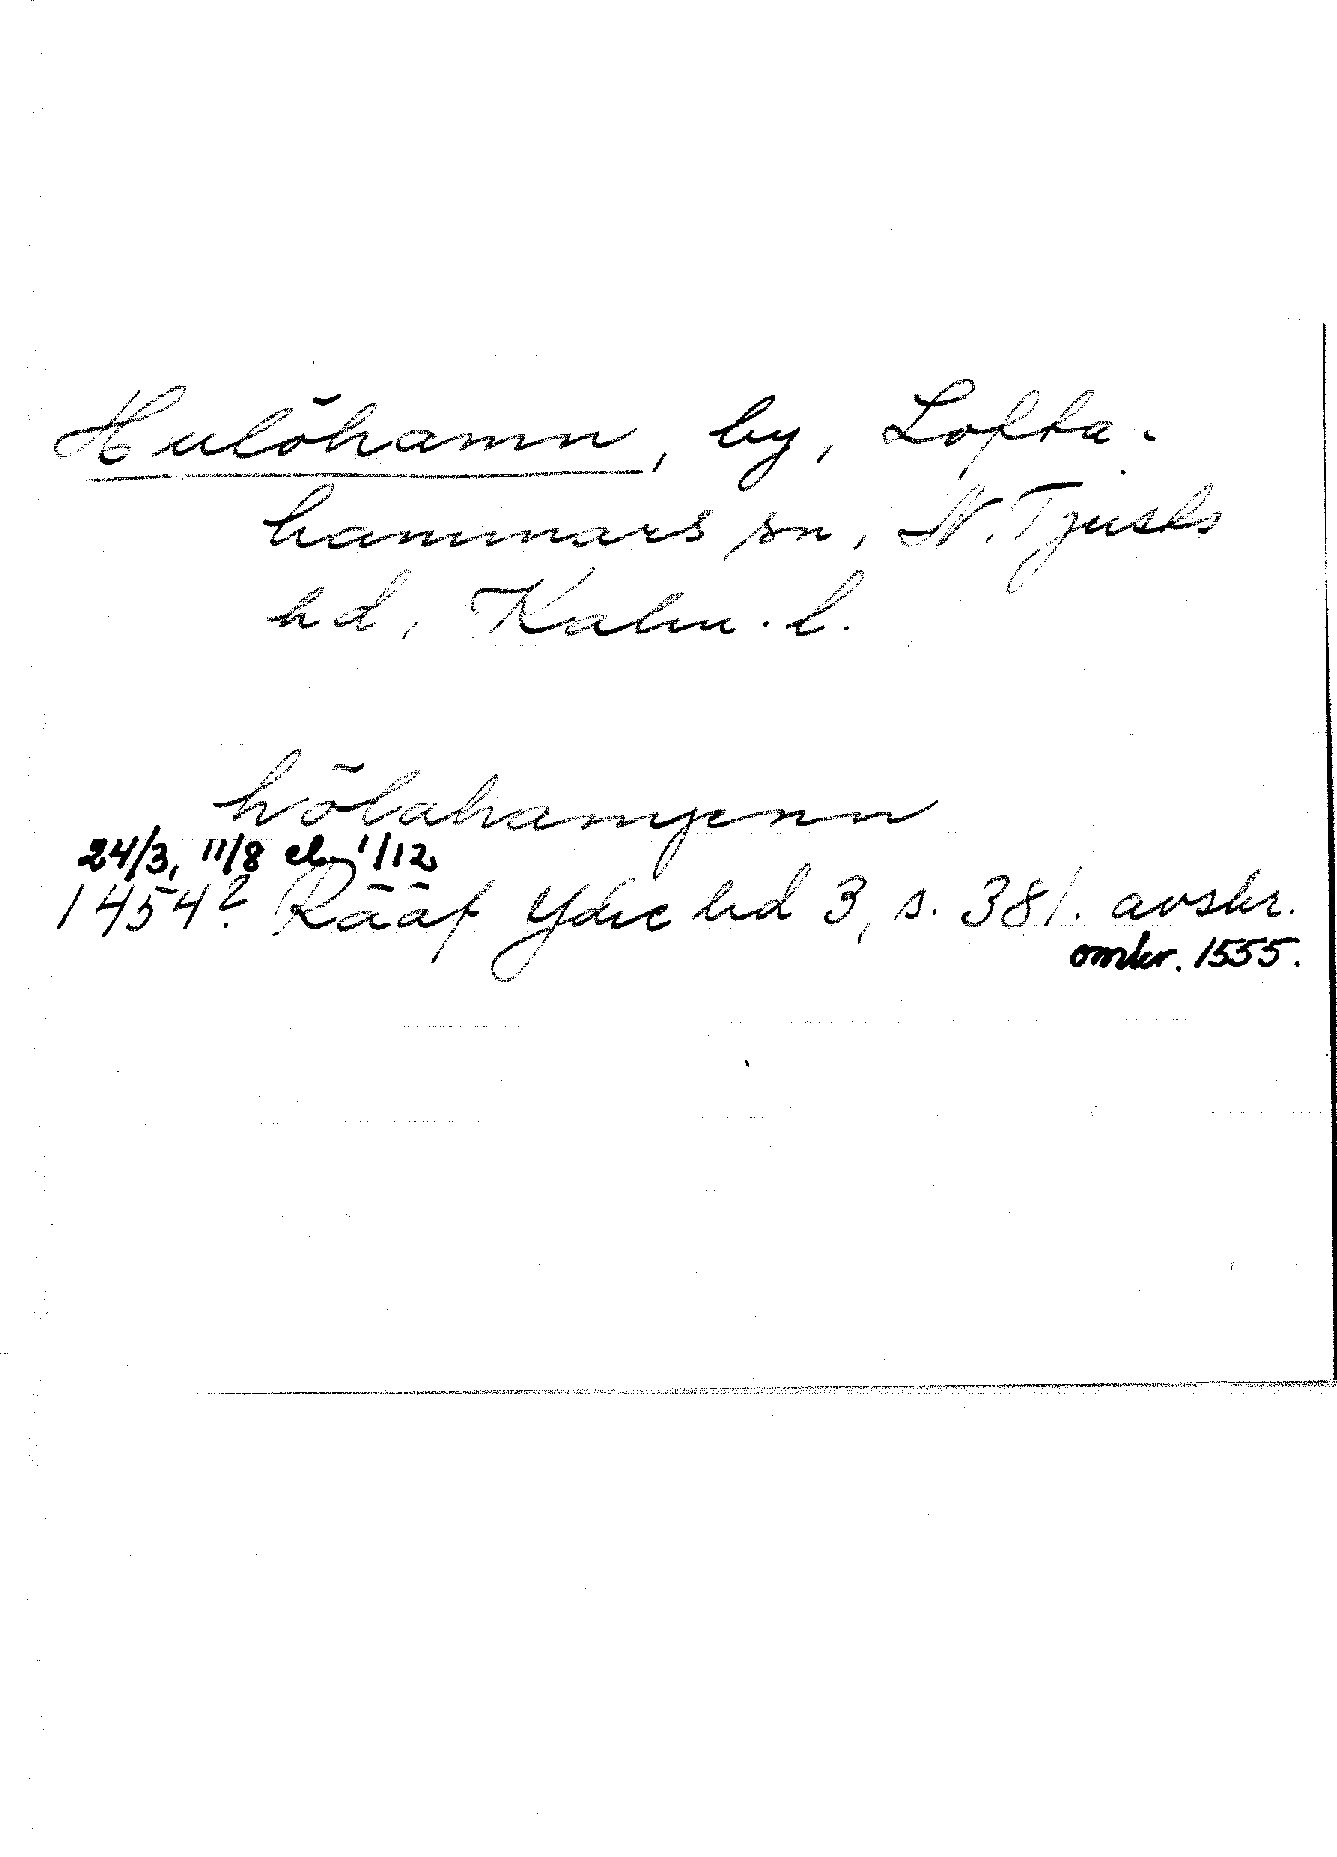 Hulöhamn, by, Lofta-
hammars sn, N. Tjusts
hd, Kalm. l.
hölahampnn
24/3, 11/8 el. 1/12
1454? Rääf Ydre hd 3, s. 381. avskr.
omkr. 1555.